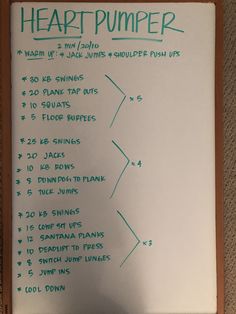 HEART PUMPER
2 MIN/20/10
* WARM UP: * JACK JUMPS * SHOULDER PUSH UPS
* 30 KB SWINGS
* 20 PLANK TAP OUTS
* 10 SQUATS
* 5 FLOOR BURPEES
x 5
* 25 KB SWINGS
* 20 JACKS
* 10 KB ROWS
* 8 DOWNDOG TO PLANK
* 5 TUCK JUMPS
x 4
* 20 KB SWINGS
* 15 COMP SIT UPS
* 12 SANTANA PLANKS
* 10 DEADLIFT TO PRESS
* 8 SWITCH JUMP LUNGES
* 5 JUMP INS
x 3
* COOL DOWN